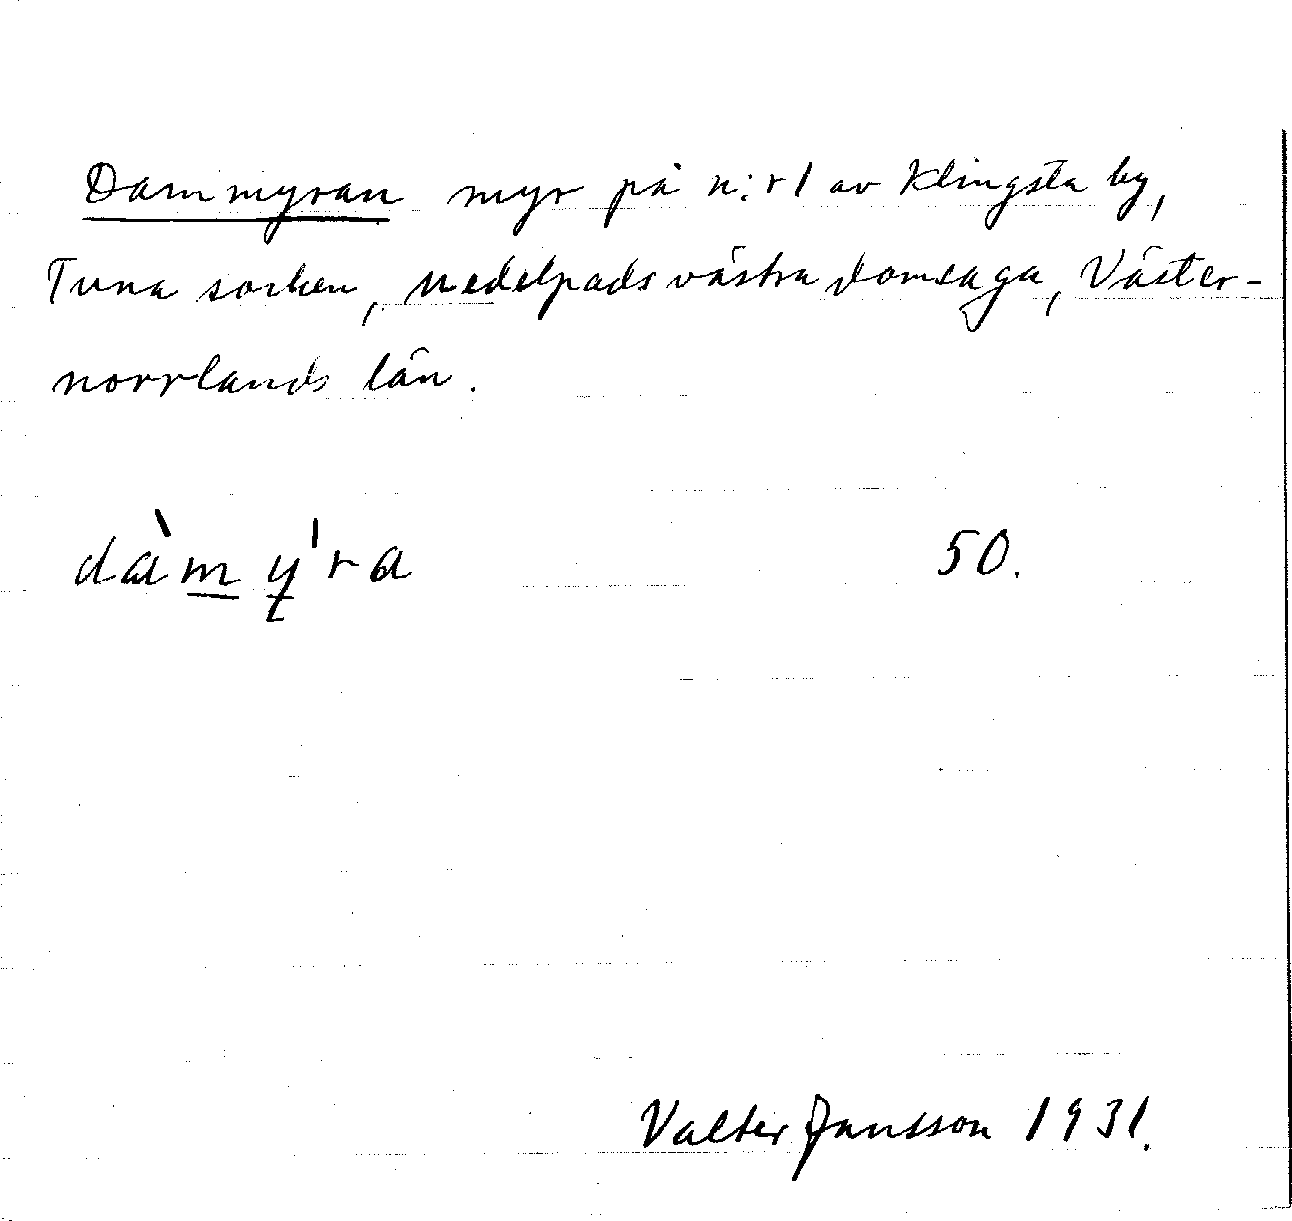 Dammyran myr på n:r 1 av Klingsta by,
Tuna socken, Medelpads västra domsaga, Väster-
norrlands län.
dàmy'ra 50.
Valter Jansson 1931.